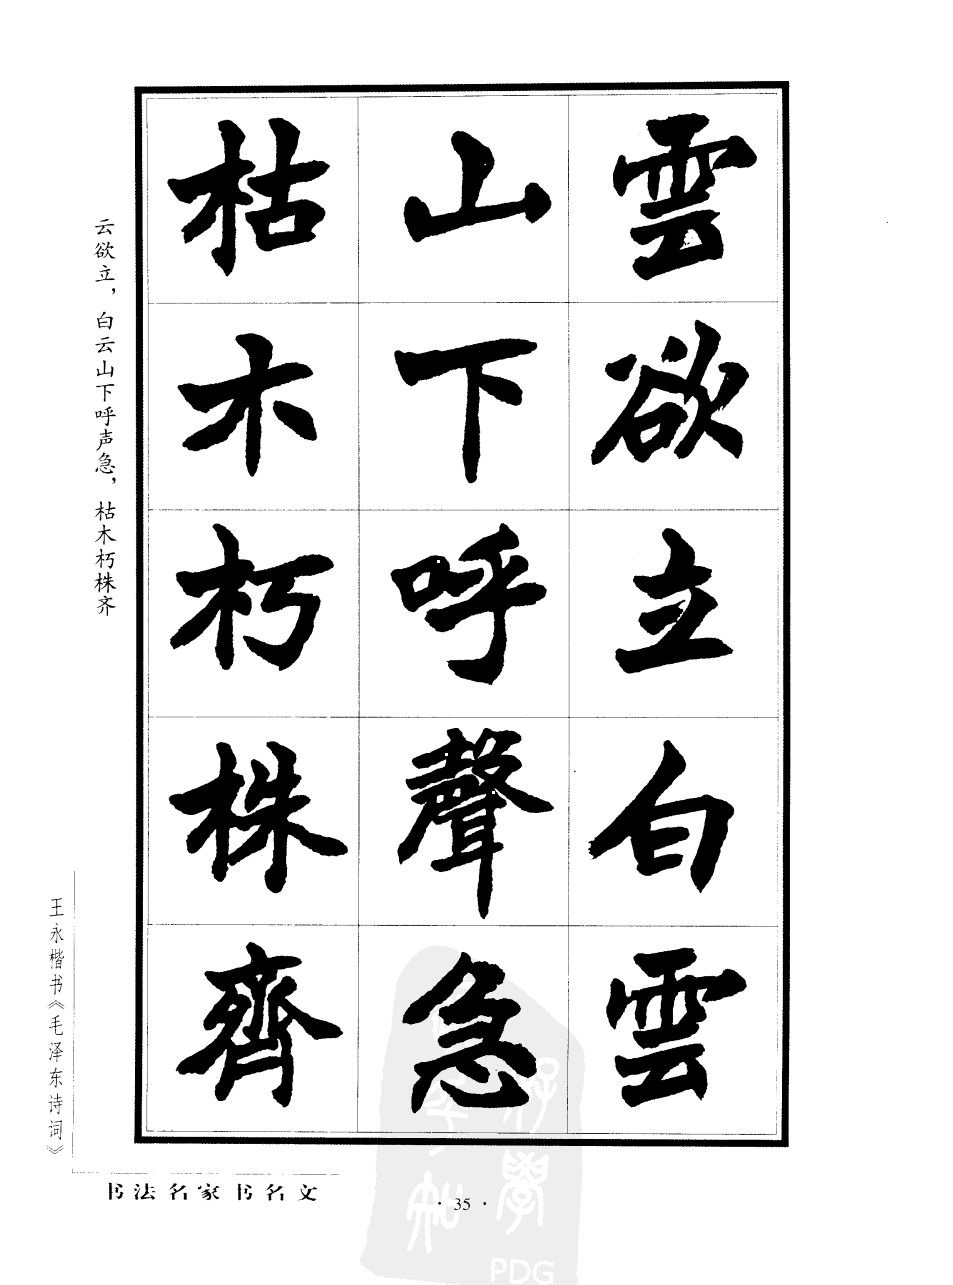 雲欲立白雲
山下呼聲急
枯木朽株齊
云欲立，白云山下呼声急，枯木朽株齐
王永楷书《毛泽东诗词》
书法名家书名文
·35·
PDG